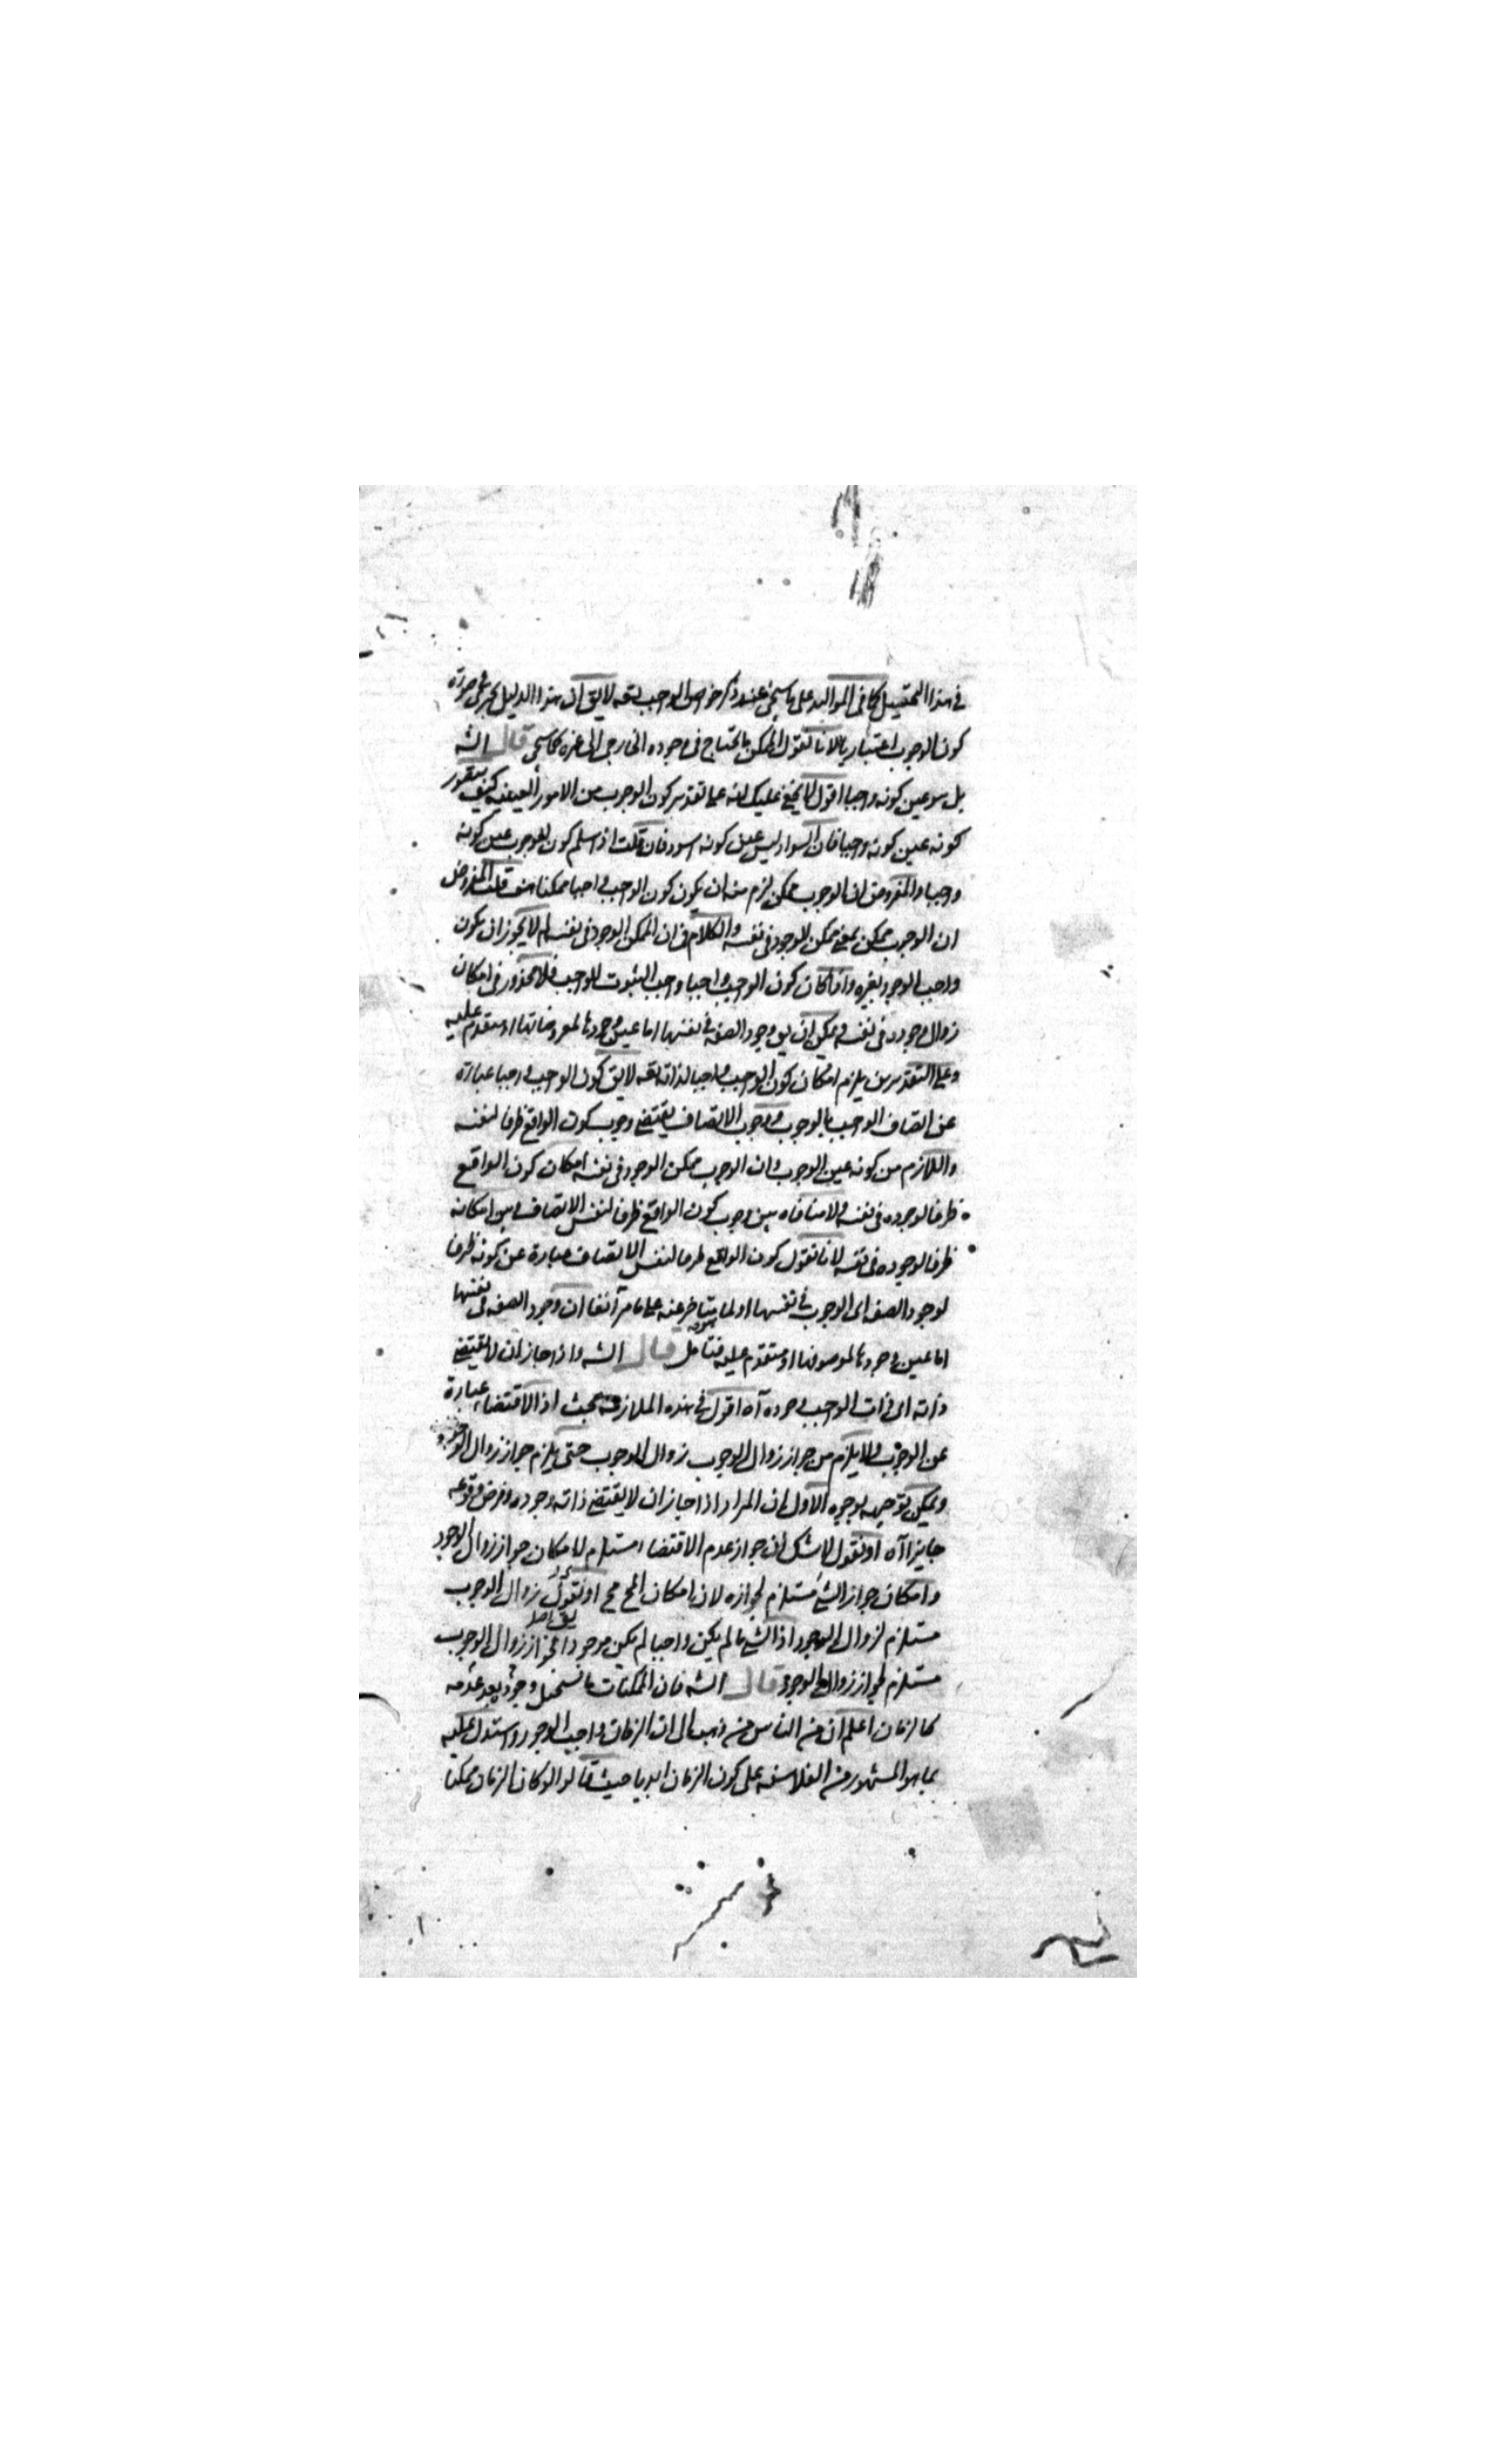 في هذا التمثيل كما في المواليد على ما سيجئ عند ذكر خواص الواجب تعه لايق ان هذا الدليل يجري في صورة
كون الوجوب اعتباريا لانا نقول الممكن ما يحتاج في وجوده الخارجي الى غيره كما سيجئ قال الشه
بل هو عين كونه واجبا اقول لا يخفى عليك انه على تقدير كون الوجوب من الامور العينية كيف يتصور
كونه عين كونه واجبا فان السواد ليس عين كونه اسود فان قلت اذ سلم كون الوجوب عين كونه
واجبا والمفروض ان الوجوب ممكن لزم منه ان يكون كون الواجب واجبا ممكنا هف قلت المفروض
ان الوجوب ممكن بمعنى ممكن الوجود في نفسه والكلام في ان الممكن الوجود في نفسه لم لا يجوز ان يكون
واجب الوجود بغيره واذا كان كون الواجب واجبا واجب الثبوت للواجب فلا محذور في امكان
زوال وجوده في نفسه ويمكن ان يق وجود الصفة في نفسها اما عين وجودها لمعروضاتها او متقدم عليه
وعلى التقديرين يلزم امكان كون الواجب واجبا لذاته تعه لايق كون الواجب واجبا عبارة
عن اتصاف الواجب بالوجوب ووجوب الاتصاف يقتضي وجوب كون الواقع ظرفا لنفسه
واللازم من كونه عين الوجوب وان الوجوب ممكن الوجود في نفسه امكان كون الواقع
ظرفا لوجوده في نفسه ولا منافاه بين وجوب كون الواقع ظرفا لنفس الاتصاف وبين امكانه
ظرفا لوجوده في نفسه لانا نقول كون الواقع ظرفا لنفس الاتصاف عبارة عن كونه ظرفا
لوجود الصفة اى الوجوب في نفسها او لما يتاخر عنه على ما مر آنفا ان وجود الصفة في نفسها
اما عين وجودها لموصوفها او متقدم عليه فتامل قال الشه واذا جاز ان لا يقتضي
ذاته اى ذات الواجب وجوده آه اقول في هذه الملازمة بحث اذ الاقتضاء عبارة
عن الوجوب ولا يلزم من جواز زوال الوجوب زوال الوجوب حتى يلزم جواز زوال الوجود
ويمكن توجيهه بوجوه الاول ان المراد اذا جاز ان لا يقتضي ذاته وجوده وفرض وقوعه
جايزا آه او نقول لا شك ان جواز عدم الاقتضاء مستلزم لامكان جواز زوال الوجود
وامكان جواز الشئ مستلزم لجوازه لان امكان المح مح او نقول زوال الوجوب
مستلزم لزوال الوجود اذ الشئ ما لم يكن واجبا لم يكن موجودا فجواز زوال الوجوب
مستلزم لجواز زوال الوجود قال الشه فان الممكنات ما يستحيل وجوده بعد عدمه
كالزمان اعلم ان من الناس من ذهب الى ان الزمان واجب الوجود واستدل عليه
بما هو المشهور من الفلاسفه على كون الزمان ابديا حيث قالوا لو كان الزمان ممكنا